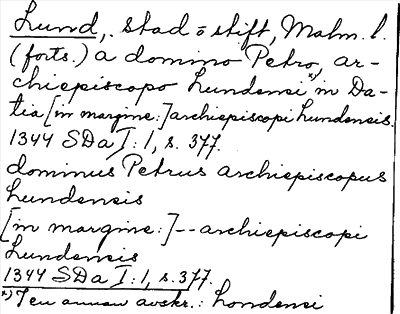 Lund, stad o stift, Malm. l.
(forts.) a domino Petro, ar-
chiepiscopo Lundensi x) in Da-
tia [in margine:] archiepiscopi Lundensis.
1344 SDa I:1, s. 377.
dominus Petrus archiepiscopus
Lundensis
[in margine:] -- archiepiscopi
Lundensis
1344 SDa I:1, s. 377.
x) I en annan avskr.: Londensi